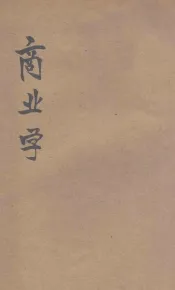 商业学